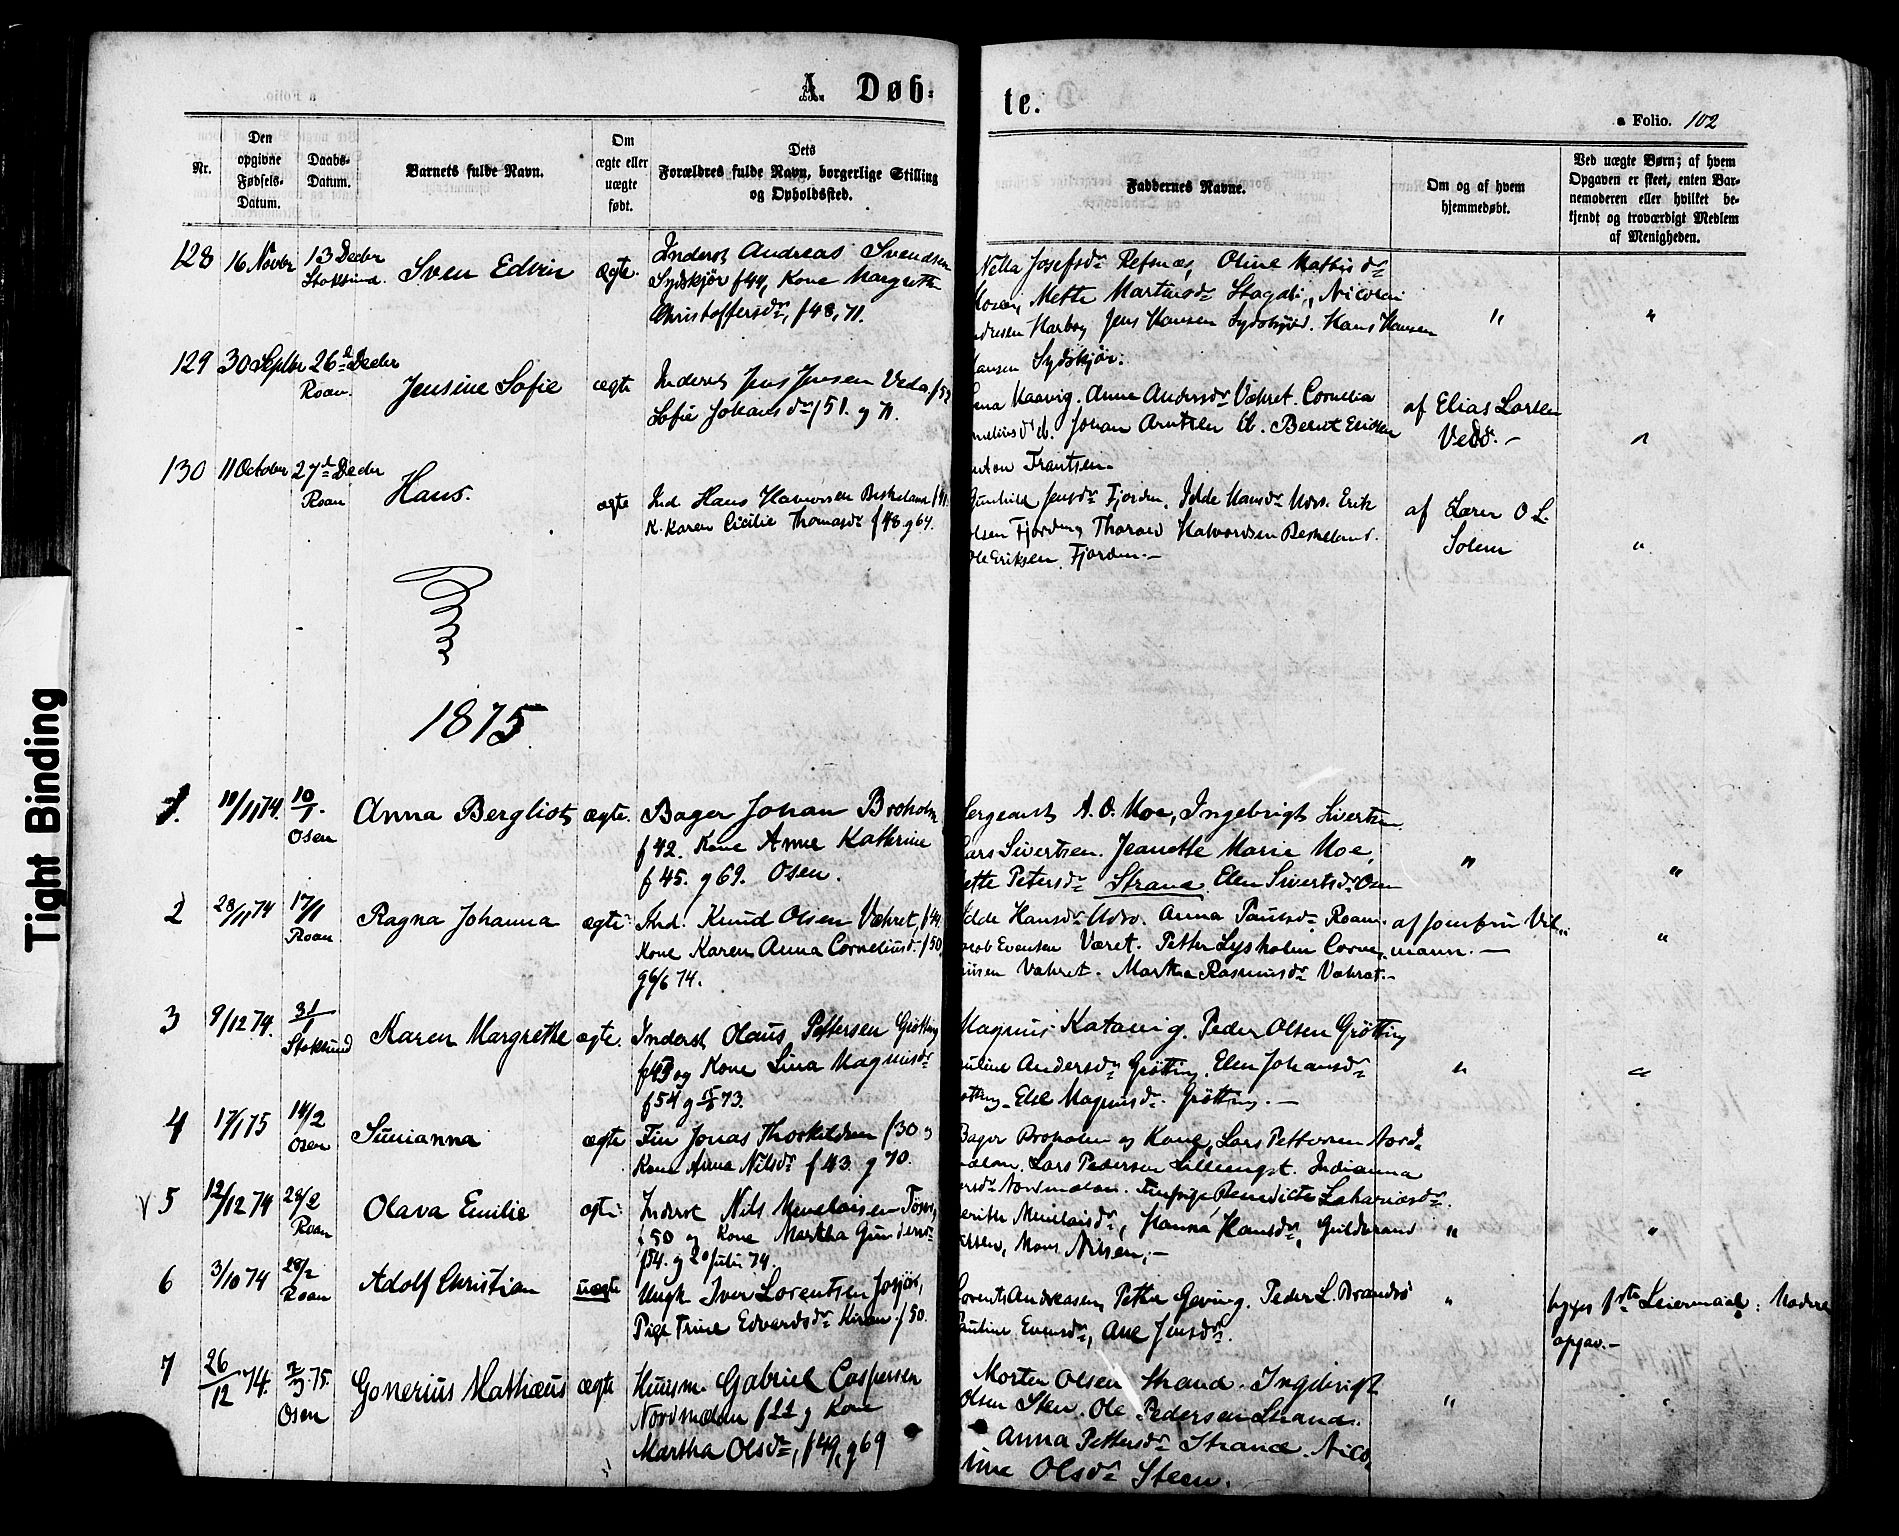 A. Døb-
te.
a Folio. 102
Nr.
Den opgivne Fødsels-Datum.
Daabs-Datum.
Barnets fulde Navn.
Om ægte eller uægte født.
Dets Forældres fulde Navn, borgerlige Stilling og Opholdssted.
Faddernes Navne.
Om og af hvem hjemmedøbt.
Ved uægte Børn; af hvem Opgaven er skeet, enten Barnemoderen eller hvilket bekjendt og troværdigt Medlem af Menigheden.
128 16 Novbr 13 Decbr Stoksund. Sven Edvin ægte.
Inderst Andreas Svendsen
Sydskjør f 44, Kone Margrethe
Christoffersdr, f 48, 71.
Netta Josefsdr Refsnæs, Oline Mathisdr
Mosen, Mette Martinsdr Stagdi, Nicolai
Harbog Jens Hansen Sydskjør. Hans Hansen
Sydskjør.
129 30 Septbr 26de Decbr Roan. Jensine Sofie ægte
Inderst Jens Jensen Veda, f 53
Sofie Johansdr f 51. g 71.
Haavig. Anne Andersdr Væhret. Cornelia
Johan Arntsen ib. Bernt Ericksen
Frantsen.
af Elias Larsen
Vedø. -
130 11 October 27de Decbr Roan Hans. ægte
Ind Hans Halvorsen Beskeland f 41
K. Karen Cicilie Thomasdr f 48 g 64.
Gunhild Jensdr Fjorden, Idde Hansdr Hdsv. Erik
Olsen Fjorden, Thorald Halvordsen Beskeland.
Ole Eriksen Fjorden. -
af Lærer O L.
Solem
1875
1. 18/11 74. 10/1. Osen Anna Bergliot ægte.
Bager Johan Broholm
f 42. Kone Anne Kathrine
f 45. g 69. Osen.
Sergeant A. O. Moe, Ingebrigt Sivertsen
Lars Sivertsen. Jeanette Marie Moe,
Petersdr Strand. Elen Sivertsdr Osen
2 28/11 74 17/1 Roan Ragna Johanna ægte
Ind. Knud Olsen Væhret, f 44.
Kone Karen Anna Corneliusd. f 50,
g 6/6 74.
Idde Hansdr Hdsv. Anna Paulsdr Roan.
Jacob Evensen Været. Petter Lysholm Corne-
Væhret. Martha Rasmusdr Væhret. -
af Jomfru Vil-
mann. -
3 9/12 74. 31/1 Stoksund Karen Margrethe ægte.
Inderst Olaus Pettersen Grøtting
f 43 og Kone Lina Magnusdr
f 54 g 73.
Magnus Katavig. Peder Olsen Grøtting
Pauline Andersdr Grøtting. Elen Johansdr
Grøtting. Else Magnusdr. Grøtting. -
4 17/1 75 14/2 Osen Susianna ægte
Fin Jonas Thorkildsen f 30 g
Kone Anna Nilsdr f 43. g 70.
Bager Broholm og Kone, Lars Pettersen Nord-
melan, Lars Pedersen Lilleengst. Indianna
Nordmelan. Benedicte Zakariasdr.
5 12/12 74 28/2 Roan Olava Emilie ægte
Inderst Nils Menelaisen
f 50 og Kone Martha Gundersdr
f 54. g 20 Juli 74.
Menelaisdr, Hanna Hansdr, Guldbrand
Mons Nilsen. -
6 3/10 74 28/2 Roan Adolf Christian uægte
Ungk Iver Lorentsen Josjøn,
Pige Trine Edvardsdr Kiran f 50.
Lorents Andreasen, Petter Geving. Peder L. Brandsø
Pauline Evensdr, Ane Jensdr.
begges 1ste Leiermaal; Modere
opgav. -
7 26/12 74. 7/3 75. Osen Gonerius Mathæus ægte
Huusm. Gabriel Caspersen
Nordmelan f 22 g Kone
Martha Olsdr, f 49, g 69
Morten Olsen Strand. Ingebrigt
Olsen Sten. Ole Pedersen Strand.
Anna Pettersdr Strand. Nico-
line Olsdr Steen.
Tight Binding